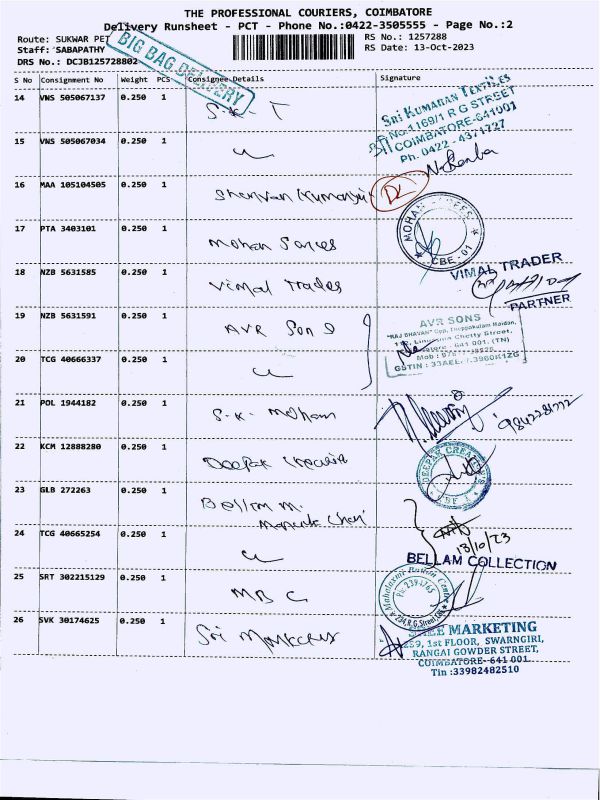 THE PROFESSIONAL COURIERS, COIMBATORE
Delivery Runsheet - PCT - Phone No.:0422-3505555 - Page No.:2
Route: SUKWAR PET
RS No.: 1257288
Staff: SABAPATHY
RS Date: 13-Oct-2023
DRS No.: DCJB125728802
BIG BAG DELIVERY
S No Consignment No Weight PCS Consignee Details Signature
14 VNS 505067137 0.250 1 S.K. T
SRI KUMARAN TEXTILES
No.1169/1 R G STREET
COIMBATORE-641001
Ph. 0422 - 4371727
15 VNS 505067034 0.250 1
16 MAA 105104505 0.250 1
17 PTA 3403101 0.250 1 Mohan Sarees
MOHAN SAREES
CBE - 01
18 NZB 5631585 0.250 1 Vimal Trades
VIMAL TRADER
PARTNER
19 NZB 5631591 0.250 1 AVR Sons
AVR SONS
"RAJ BHAVAN" Opp. Theppakulam Maidan,
Chetty Street,
641 001. (TN)
Mob :
GSTIN : 33AEL
20 TCG 40666337 0.250 1
21 POL 1944182 0.250 1 S.K. Mohan
9842281772
22 KCM 12888280 0.250 1 Deepak
DEEPAK CREATIONS
23 GLB 272263 0.250 1 Bellam
24 TCG 40665254 0.250 1
13/10/23
BELLAM COLLECTION
25 SRT 302215129 0.250 1 MBC
Mahalaxmi Button Centre
234, R.G. Street, CBE
26 SVK 30174625 0.250 1 Sri
SREE MARKETING
259, 1st FLOOR, SWARNGIRI,
RANGAI GOWDER STREET,
COIMBATORE- 641 001.
Tin :33982482510